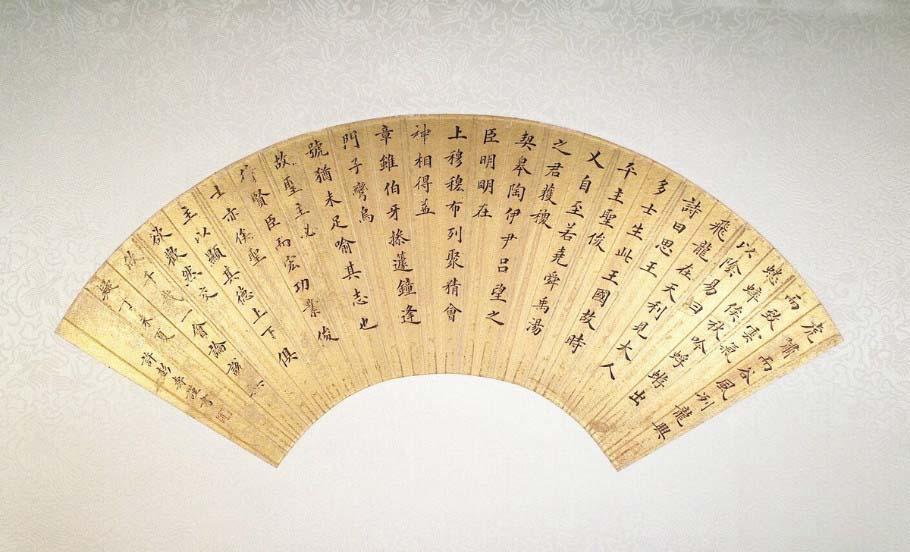 虎嘯而谷風冽龍興
而致雲氣
蟋蟀俟秋吟蜉蝣出
以陰易曰
飛龍在天利見大人
詩曰思王
多士生此王國故時
平主聖俊
乂自至若堯舜禹湯
之君獲稷
契皋陶伊尹呂望之
臣明明在
上穆穆布列聚精會
神相得益
章雖伯牙操遞鐘逢
門子彎烏
號猶未足喻其志也
故聖主必
待賢臣而宏功業俊
士亦俟聖
主以顯其德上下俱
欲歡然交
欣千載一會論說無
疑丁未夏許彭壽謹書